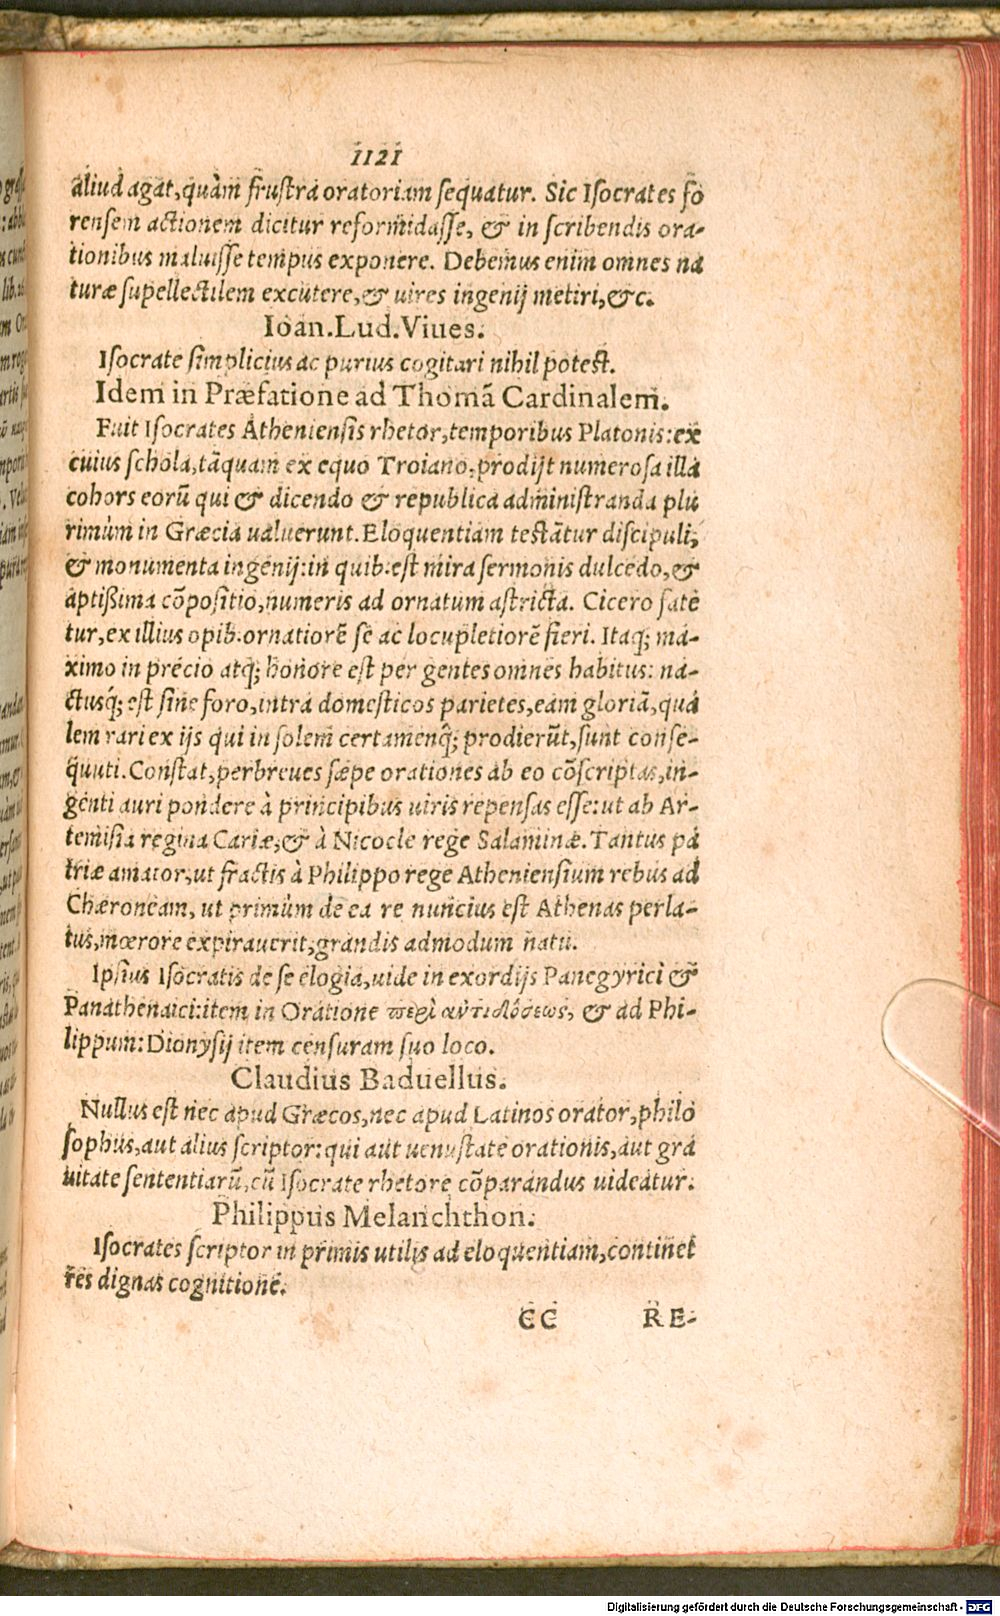 1121
aliud agat, quàm frustra oratoriam sequatur. Sic Isocrates fo
rensem actionem dicitur reformidasse, & in scribendis ora-
tionibus maluisse tempus exponere. Debemus enim omnes na
turæ supellectilem excutere, & uires ingenij metiri, &c.
Ioan. Lud. Viues.
Isocrate simplicius ac purius cogitari nihil potest.
Idem in Præfatione ad Thomã Cardinalem.
Fuit Isocrates Atheniensis rhetor, temporibus Platonis: ex
cuius schola, tãquam ex equo Troiano, prodijt numerosa illa
cohors eorũ qui & dicendo & republica administranda plu
rimùm in Græcia ualuerunt. Eloquentiam testãtur discipuli,
& monumenta ingenij: in quib. est mira sermonis dulcedo, &
aptißima cõpositio, numeris ad ornatum astricta. Cicero fate
tur, ex illius opib. ornatiorẽ se ac locupletiorẽ fieri. Itaq; ma-
ximo in precio atq; honore est per gentes omnes habitus: na-
ctusq́; est sine foro, intra domesticos parietes, eam gloriã, qua
lem rari ex ijs qui in solem certamenq́; prodierũt, sunt conse-
quuti. Constat, perbreues sæpe orationes ab eo cõscriptas, in-
genti auri pondere à principibus uiris repensas esse: ut ab Ar-
temisia regina Cariæ, & à Nicocle rege Salaminæ. Tantus pa
triæ amator, ut fractis à Philippo rege Atheniensium rebus ad
Chæroneam, ut primùm de ea re nuncius est Athenas perla-
tus, mœrore expirauerit, grandis admodum natu.
Ipsius Isocratis de se elogia, uide in exordijs Panegyrici &
Panathenaici: item in Oratione περὶ ἀντιδόσεως, & ad Phi-
lippum: Dionysij item censuram suo loco.
Claudius Baduellus.
Nullus est nec apud Græcos, nec apud Latinos orator, philo
sophus, aut alius scriptor: qui aut uenustate orationis, aut gra
uitate sententiarũ, cũ Isocrate rhetore cõparandus uideatur.
Philippus Melanchthon.
Isocrates scriptor in primis utilis ad eloquentiam, continet
res dignas cognitione.
CC RE-
Digitalisierung gefördert durch die Deutsche Forschungsgemeinschaft - DFG